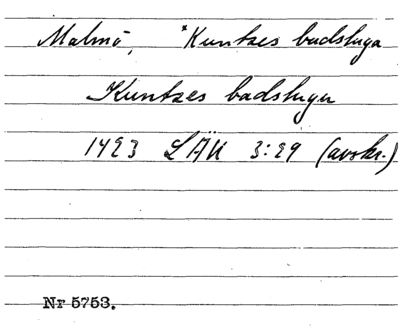 Malmö, *Kuntzes badstuga
Kuntzes badstugu
1493 LÄU 3:29 (avskr.)
Nr 5753.